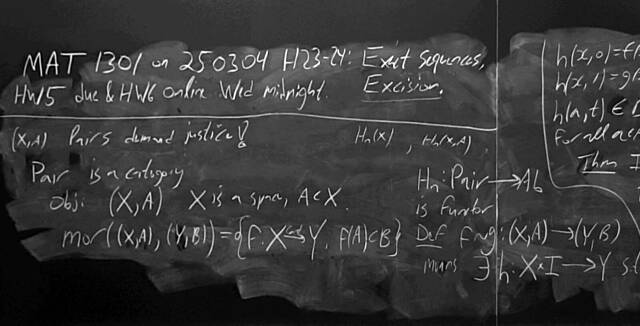 MAT 1301 on 250304 H23-24: Exact Sequences,
Excision.
HW5 due & HW6 online Wed midnight.
(X,A) Pairs demand justice!
Hn(X), Hn(X,A)
Pair is a category
Obj: (X,A) X is a space, A⊂X.
mor((X,A),(Y,B)) = {f: X → Y, f(A)⊂B}
Hn: Pair → Ab
is functor
Def f~g: (X,A) → (Y,B)
means ∃ h: X×I → Y s.t
h(x,0)=f(
h(x,1)=g(
h(a,t) ∈
for all a∈
Thm